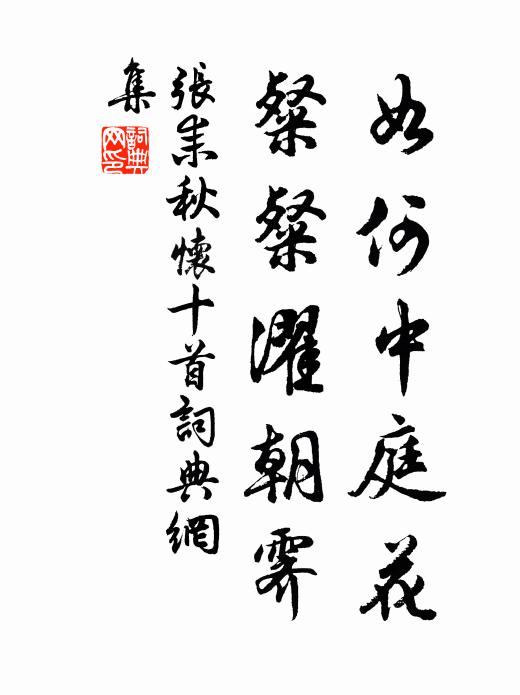 如何中庭花
粲粲濯朝霽
張耒秋懷十首詞典網
集
詞典
网印